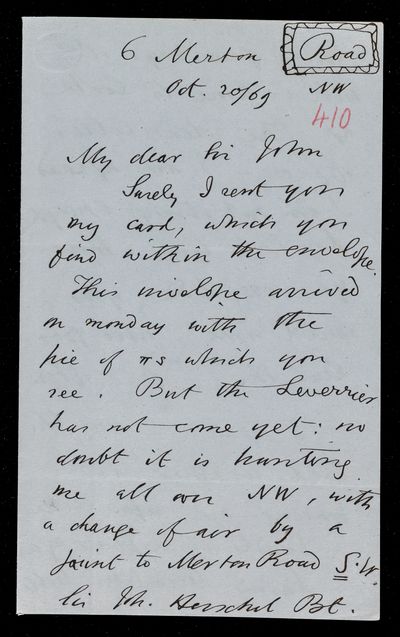 6 Merton Road
Oct. 20/69 NW
410
My dear Sir John
Surely I sent you
my card, which you
find within the envelope.
This envelope arrived
on monday with the
pie of πs which you
see. But the Leverrier
has not come yet: no
doubt it is hunting
me all over NW, with
a change of air by a
jaint to Merton Road S.W.
Sir Jh. Herschel Bt.